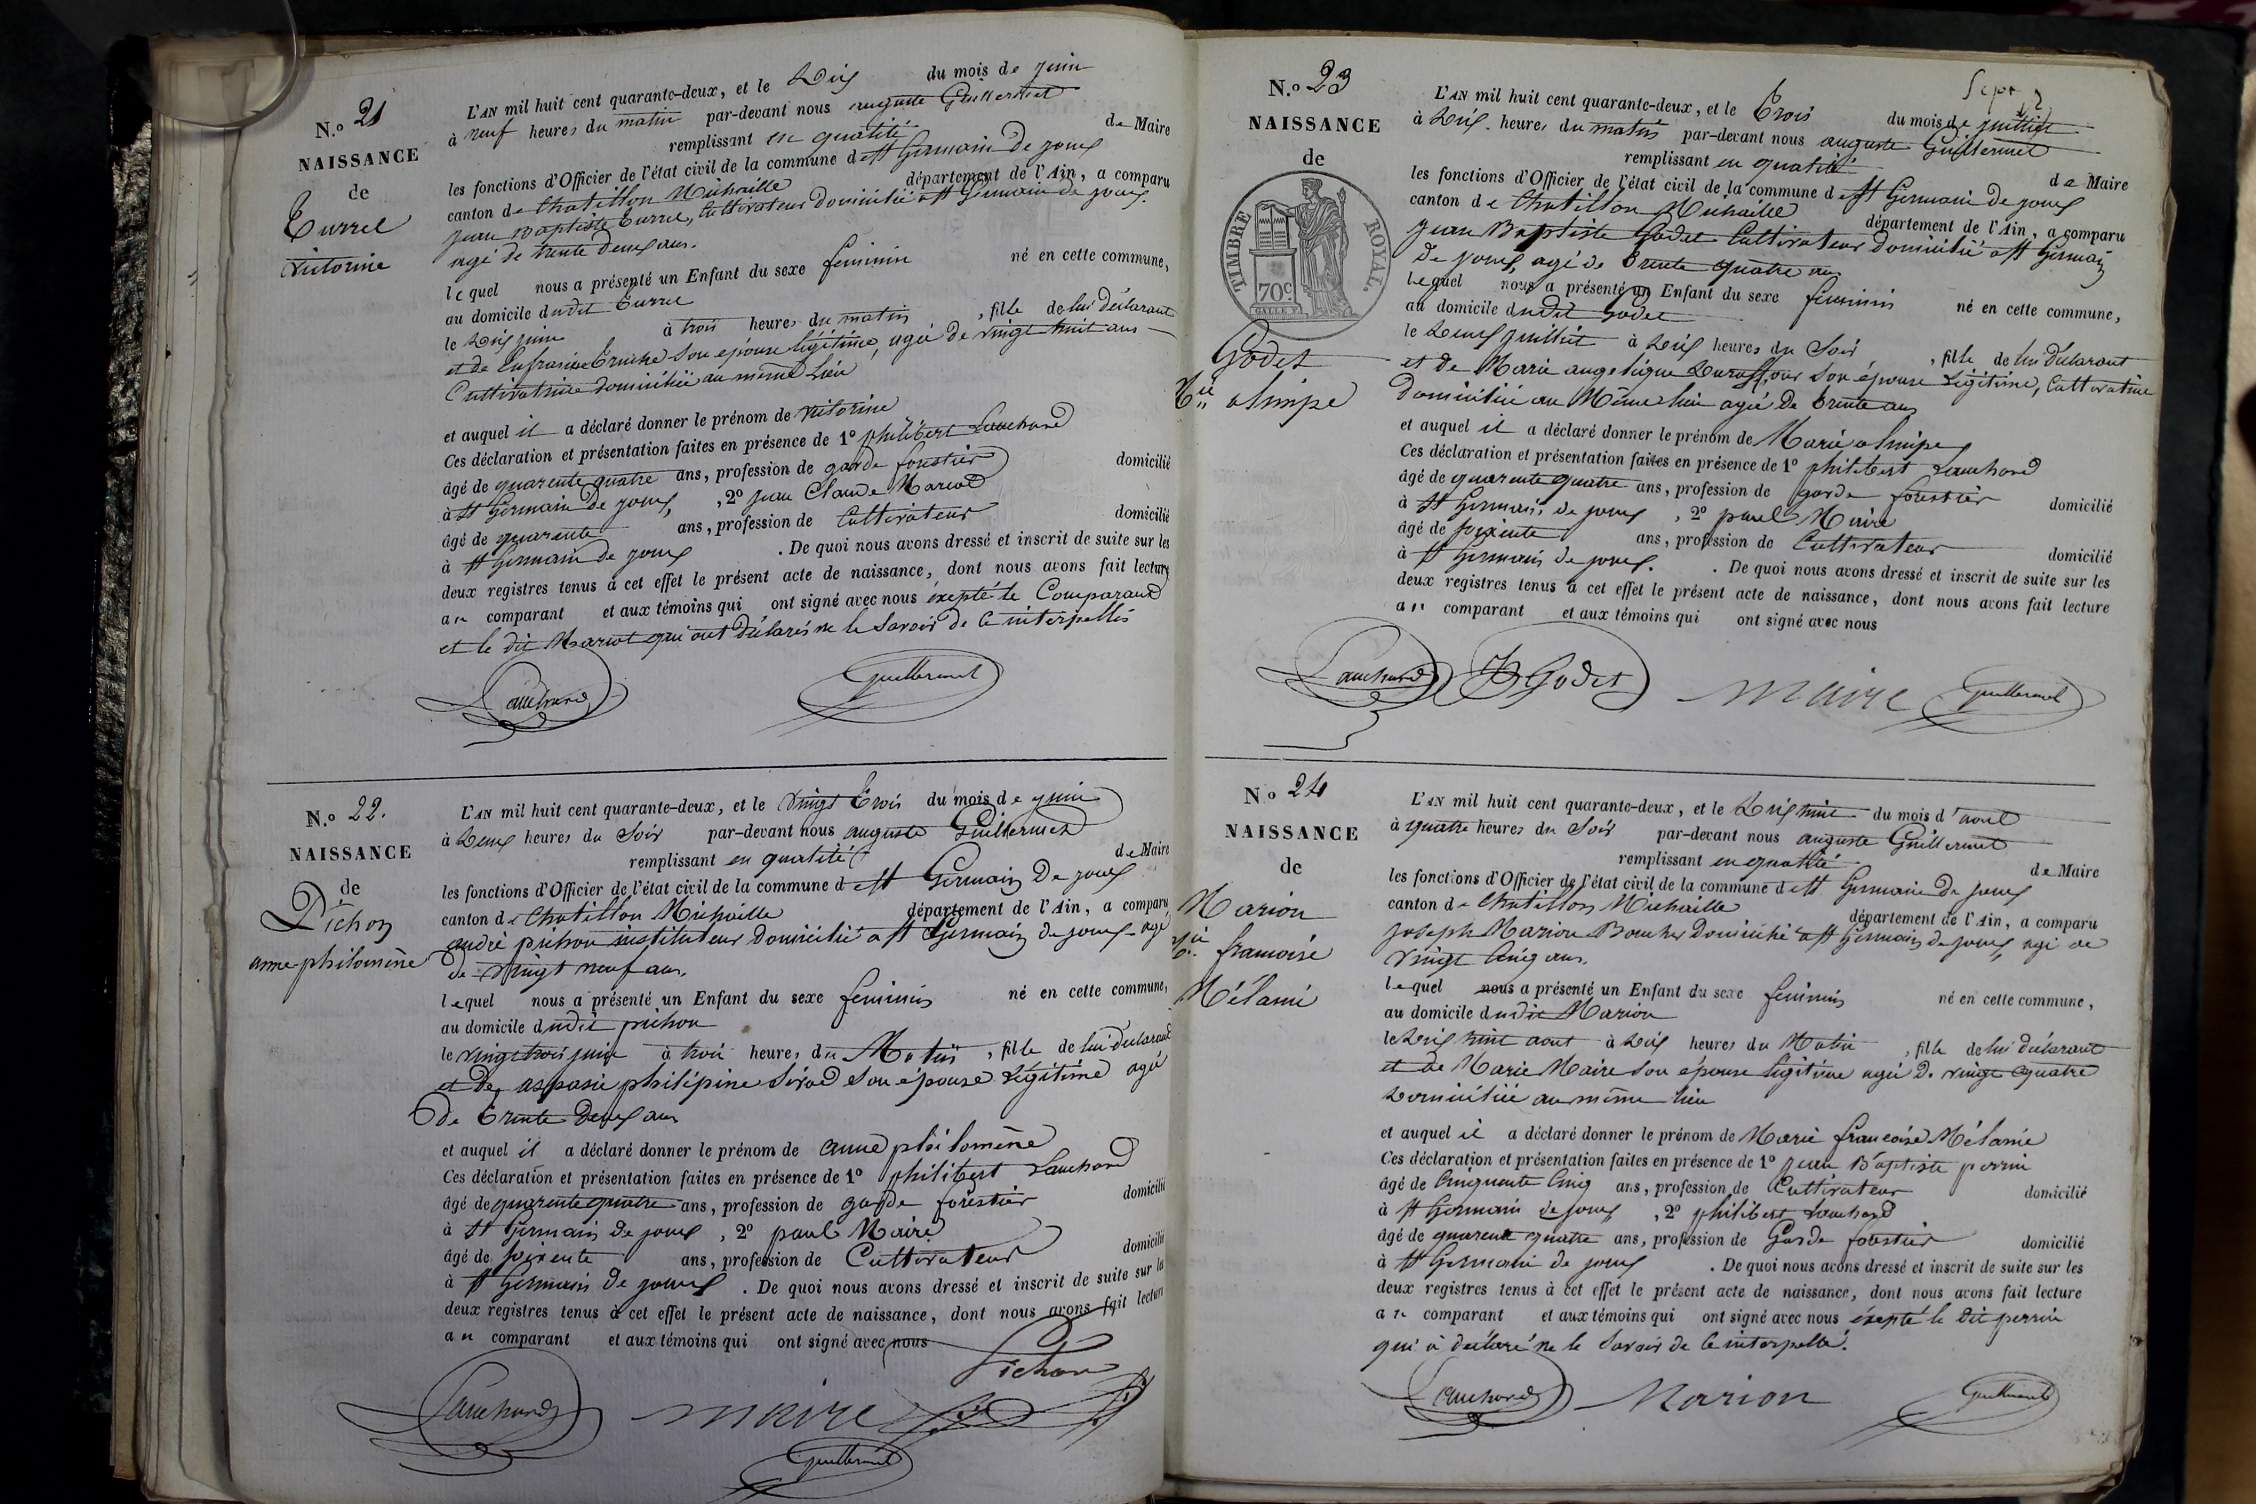 N.o 21
NAISSANCE
de
Turrel
Victorine
L'AN mil huit cent quarante-deux, et le Dix du mois de juin
à neuf heures du matin par-devant nous auguste Guillermet
remplissant en qualité de Maire
les fonctions d'Officier de l'état civil de la commune de St Germain de joux
canton de Chatillon Michaille département de l'Ain, a comparu
jean Baptiste Turrel, Cultivateur domicilié à St Germain de joux.
agé de trente deux ans.
lequel nous a présenté un Enfant du sexe feminin né en cette commune,
au domicile dudit Turrel
le Dix juin à trois heures du matin, fille de lui déclarant
et de Eufrasine son épouse légitime, agée de vingt huit ans
Cultivatrice domiciliée au même lieu
et auquel il a déclaré donner le prénom de victorine
Ces déclaration et présentation faites en présence de 1o philibert Lauchard
âgé de quarente quatre ans, profession de garde forestier domicilié
à St Germain de joux, 2o jean Claude Mariot
âgé de quarente ans, profession de Cultivateur domicilié
à St Germain de joux. De quoi nous avons dressé et inscrit de suite sur les
deux registres tenus à cet effet le présent acte de naissance, dont nous avons fait lecture
au comparant et aux témoins qui ont signé avec nous éxepté le Comparant
et le dit Mariot qui ont déclarés ne le Savoir de Ce interpellés
Lauchard Guillermet
N.o 22.
NAISSANCE
de
Pichon
anne philomène
L'AN mil huit cent quarante-deux, et le vingt Trois du mois de juin
à Deux heures du Soir par-devant nous auguste Guillermet
remplissant en qualité de Maire
les fonctions d'Officier de l'état civil de la commune de St Germain de joux
canton de Chatillon Michaille département de l'Ain, a comparu
andré pichon instituteur Domicilié à St Germain de joux - agé
de vingt neuf ans.
lequel nous a présenté un Enfant du sexe feminin né en cette commune,
au domicile dudit pichon
le vingt trois juin à trois heures du Matin, fille de lui déclarant
et de aspasie philipine Sirod Son épouse Légitime agée
de Trente deux ans
et auquel il a déclaré donner le prénom de anne philomène
Ces déclaration et présentation faites en présence de 1o philibert Lauchard
âgé de quarente quatre ans, profession de garde forestier domicilié
à St Germain de joux, 2o paul Maire
âgé de soixente ans, profession de Cultivateur domicilié
à St Germain de joux. De quoi nous avons dressé et inscrit de suite sur les
deux registres tenus à cet effet le présent acte de naissance, dont nous avons fait lecture
au comparant et aux témoins qui ont signé avec nous
Pichon
Lauchard maire
Guillermet
N.o 23
NAISSANCE
de
TIMBRE ROYAL.
70c
GALLE F.
Godet
Mie olimpe
L'AN mil huit cent quarante-deux, et le Trois du mois de juillet
à Dix heures du matin par-devant nous auguste Guillermet
remplissant en qualité de Maire
les fonctions d'Officier de l'état civil de la commune de St Germain de joux
canton de Chatillon Michaille département de l'Ain, a comparu
jean Baptiste Godet Cultivateur domicilié à St Germain
de joux, agé de Trente quatre ans
lequel nous a présenté un Enfant du sexe feminin né en cette commune,
au domicile dudit Godet
le Deux juillet à Dix heures du Soir, fille de lui déclarant
et de Marie angelique Duraffour Son épouse Légitime, Cultivatrice
domiciliée au Même lieu agée de Trente ans
et auquel il a déclaré donner le prénom de Marie olimpe
Ces déclaration et présentation faites en présence de 1o philibert Lauchard
âgé de quarente quatre ans, profession de garde forestier domicilié
à St Germain de joux, 2o paul Maire
âgé de soixente ans, profession de Cultivateur domicilié
à St Germain de joux. De quoi nous avons dressé et inscrit de suite sur les
deux registres tenus à cet effet le présent acte de naissance, dont nous avons fait lecture
au comparant et aux témoins qui ont signé avec nous
Lauchard JB Godet maire Guillermet
No 24
NAISSANCE
de
Marion
Mie francoise
Mélanie
L'AN mil huit cent quarante-deux, et le Dix huit du mois d'aout
à quatre heures du Soir par-devant nous auguste Guillermet
remplissant en qualité de Maire
les fonctions d'Officier de l'état civil de la commune de St Germain de joux
canton de Chatillon Michaille département de l'Ain, a comparu
joseph Marion Boucher Domicilié à St Germain de joux, agé de
vingt Cinq ans.
lequel nous a présenté un Enfant du sexe feminin né en cette commune,
au domicile dudit Marion
le Dix huit aout à Dix heures du Matin, fille de lui déclarant
et de Marie Maire Son épouse Légitime agée de vingt quatre
Domiciliée au même lieu
et auquel il a déclaré donner le prénom de Marie francoise Mélanie
Ces déclaration et présentation faites en présence de 1o jean Baptiste perrin
âgé de Cinquente Cinq ans, profession de Cultivateur domicilié
à St Germain de joux, 2o philibert Lauchard
âgé de quarente quatre ans, profession de Garde forestier domicilié
à St Germain de joux. De quoi nous avons dressé et inscrit de suite sur les
deux registres tenus à cet effet le présent acte de naissance, dont nous avons fait lecture
au comparant et aux témoins qui ont signé avec nous éxepté le Dit perrin
qui à déclaré ne le Savoir de Ce interpellé.
Lauchard Marion Guillermet